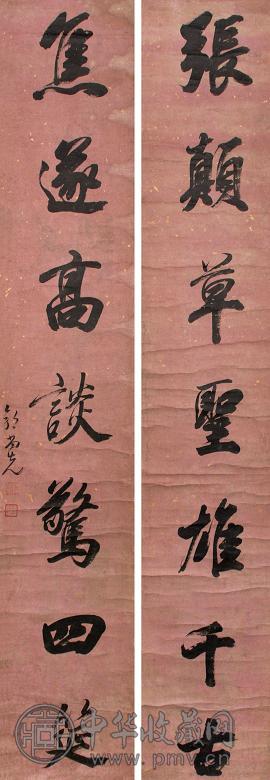 張顛草聖雄千古
焦遂高談驚四筵
郭尚先
中华收藏网
www.pmv.cn